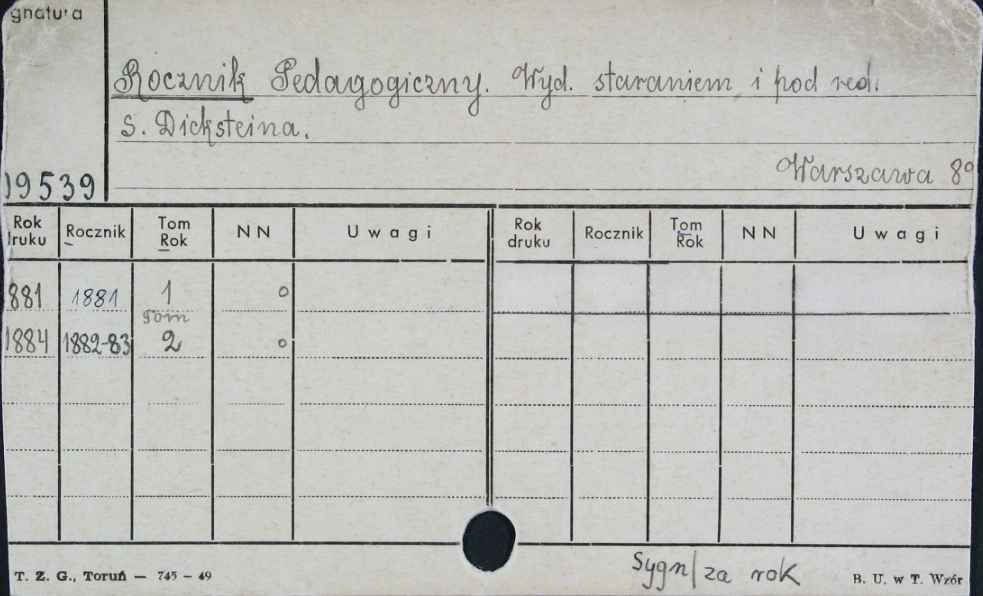 gnatura
Rocznik Pedagogiczny. Wyd. staraniem i pod red.
S. Dicksteina.
Warszawa 8º
09539
Rok druku Rocznik Tom Rok NN Uwagi Rok druku Rocznik Tom Rok NN Uwagi
881 1881 1 o
Tom
1884 1882-83 2 o
Sygn/za rok
T. Z. G., Toruń — 745 – 49 B. U. w T. Wzór